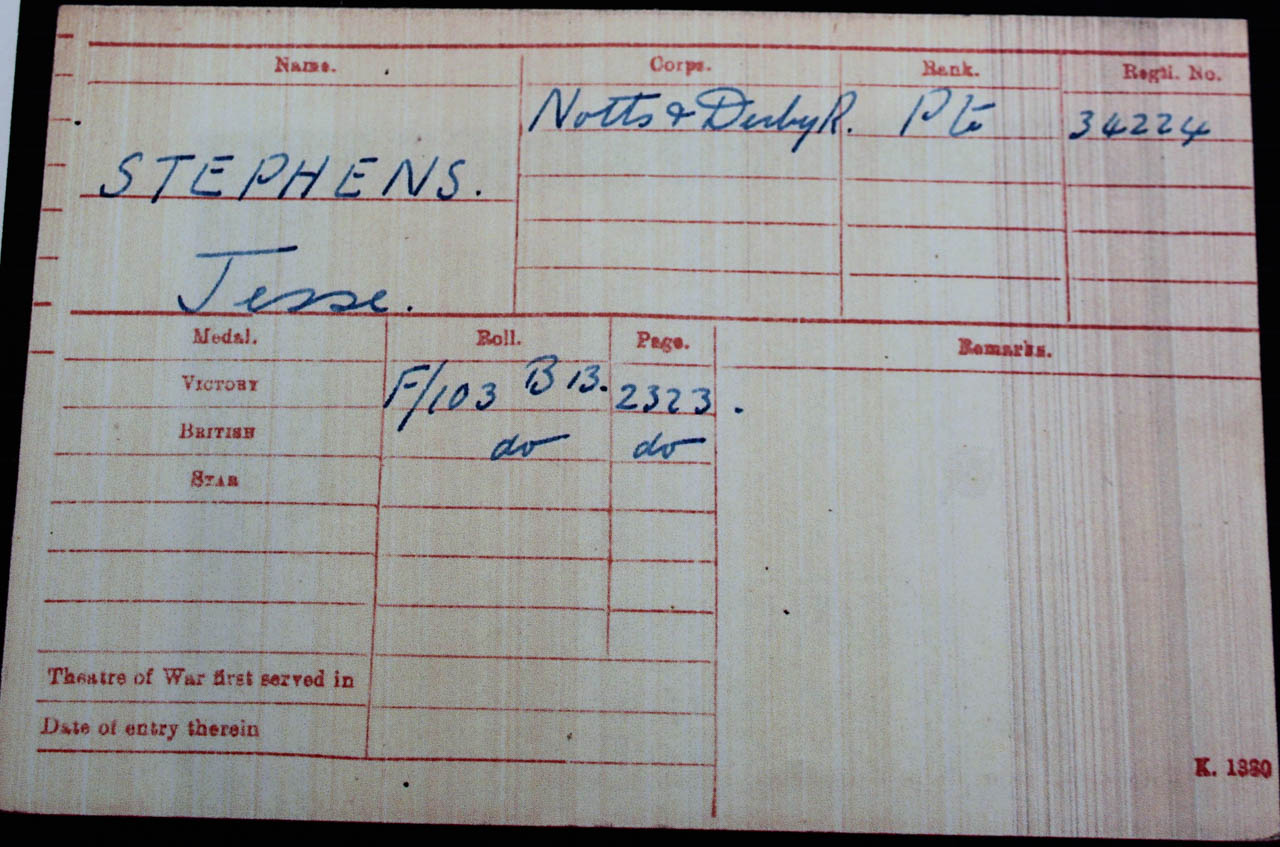 Name. Corps. Rank. Regtl. No.
Notts & Derby R. Pte 34224
STEPHENS.
Jesse.
Medal. Roll. Page. Remarks.
VICTORY F/103 B 13. 2323.
BRITISH do do
STAR
Theatre of War first served in
Date of entry therein
K. 1380